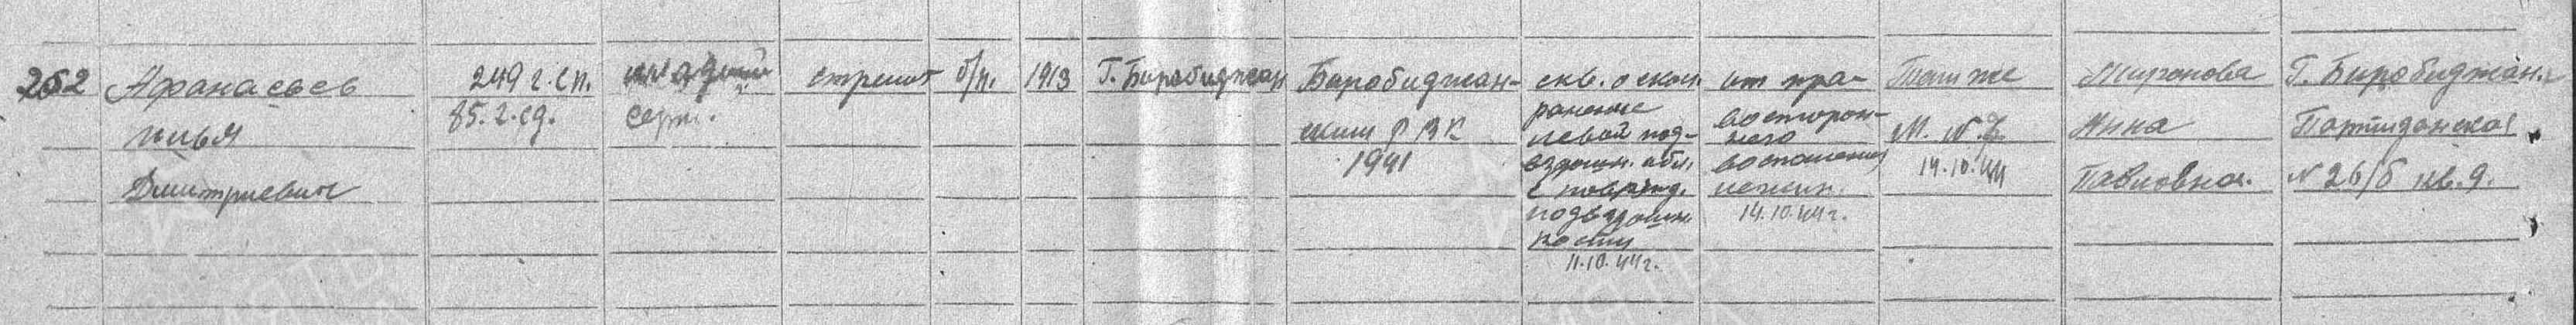 252
Афанасьев
Илья
Дмитриевич
249 г. сп.
85. г. сд.
младший
серж.
стрелок
б/п.
1913
Г. Биробиджан
Биробиджан-
ским РВК
1941
скв. оскол.
ранение
левой под-
вздошн. обл.
с поврежд.
подвздошн.
кости
11.10.44г.
от пра-
восторон-
него
воспаления
легких.
14.10.44г.
Там же
М. № 7
14.10.44
Миронова
Нина
Павловна.
Г. Биробиджан.
Партизанская
№ 26/б кв. 9.